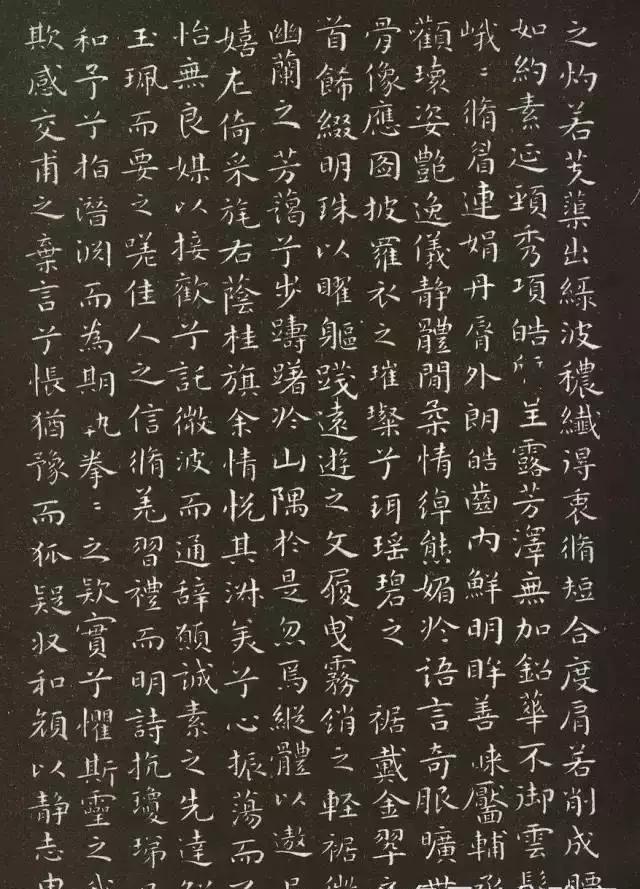 之灼若芙蕖出綠波穠纖得衷脩短合度肩若削成
如約素延頸秀項皓呈露芳澤無加鉛華不御雲
峨〻脩眉連娟丹脣外朗皓齒內鮮明眸善睞靨輔
顴瓌姿艷逸儀静體閒柔情綽態媚於語言奇服曠
骨像應圖披羅衣之璀璨兮珥瑶碧之裾戴金翠
首餙綴明珠以曜軀踐遠遊之文履曳霧綃之輕裾
幽蘭之芳藹兮步躊躇於山隅於是忽焉縱體以遨
嬉左倚采旄右蔭桂旗余情悅其淋美兮心振蕩而
怡無良媒以接歡兮託微波而通辭願誠素之先達
玉珮而要之嗟佳人之信脩羌習禮而明詩抗瓊珶
和予兮指潛淵而為期執拳〻之欵實兮懼斯靈之我
欺感交甫之棄言兮悵猶豫而狐疑収和顏以静志